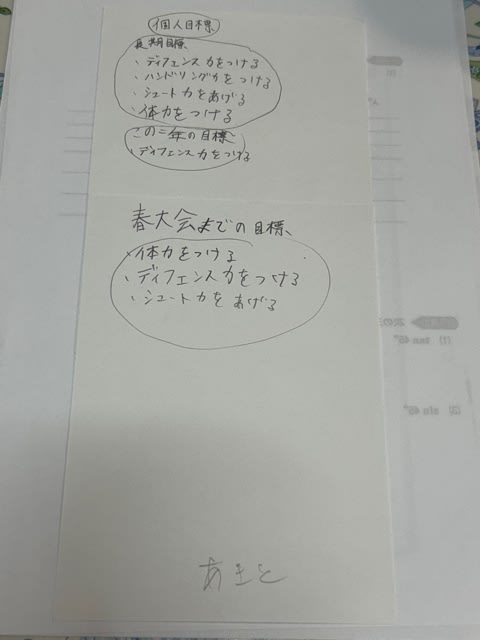 個人目標
長期目標
・ディフェンス力をつける
・ハンドリング力をつける
・シュート力をあげる
・体力をつける
この一年の目標
・ディフェンス力をつける
春大会までの目標
・体力をつける
・ディフェンス力をつける
・シュート力をあげる
(1) tan 45°
(2) sin 45°